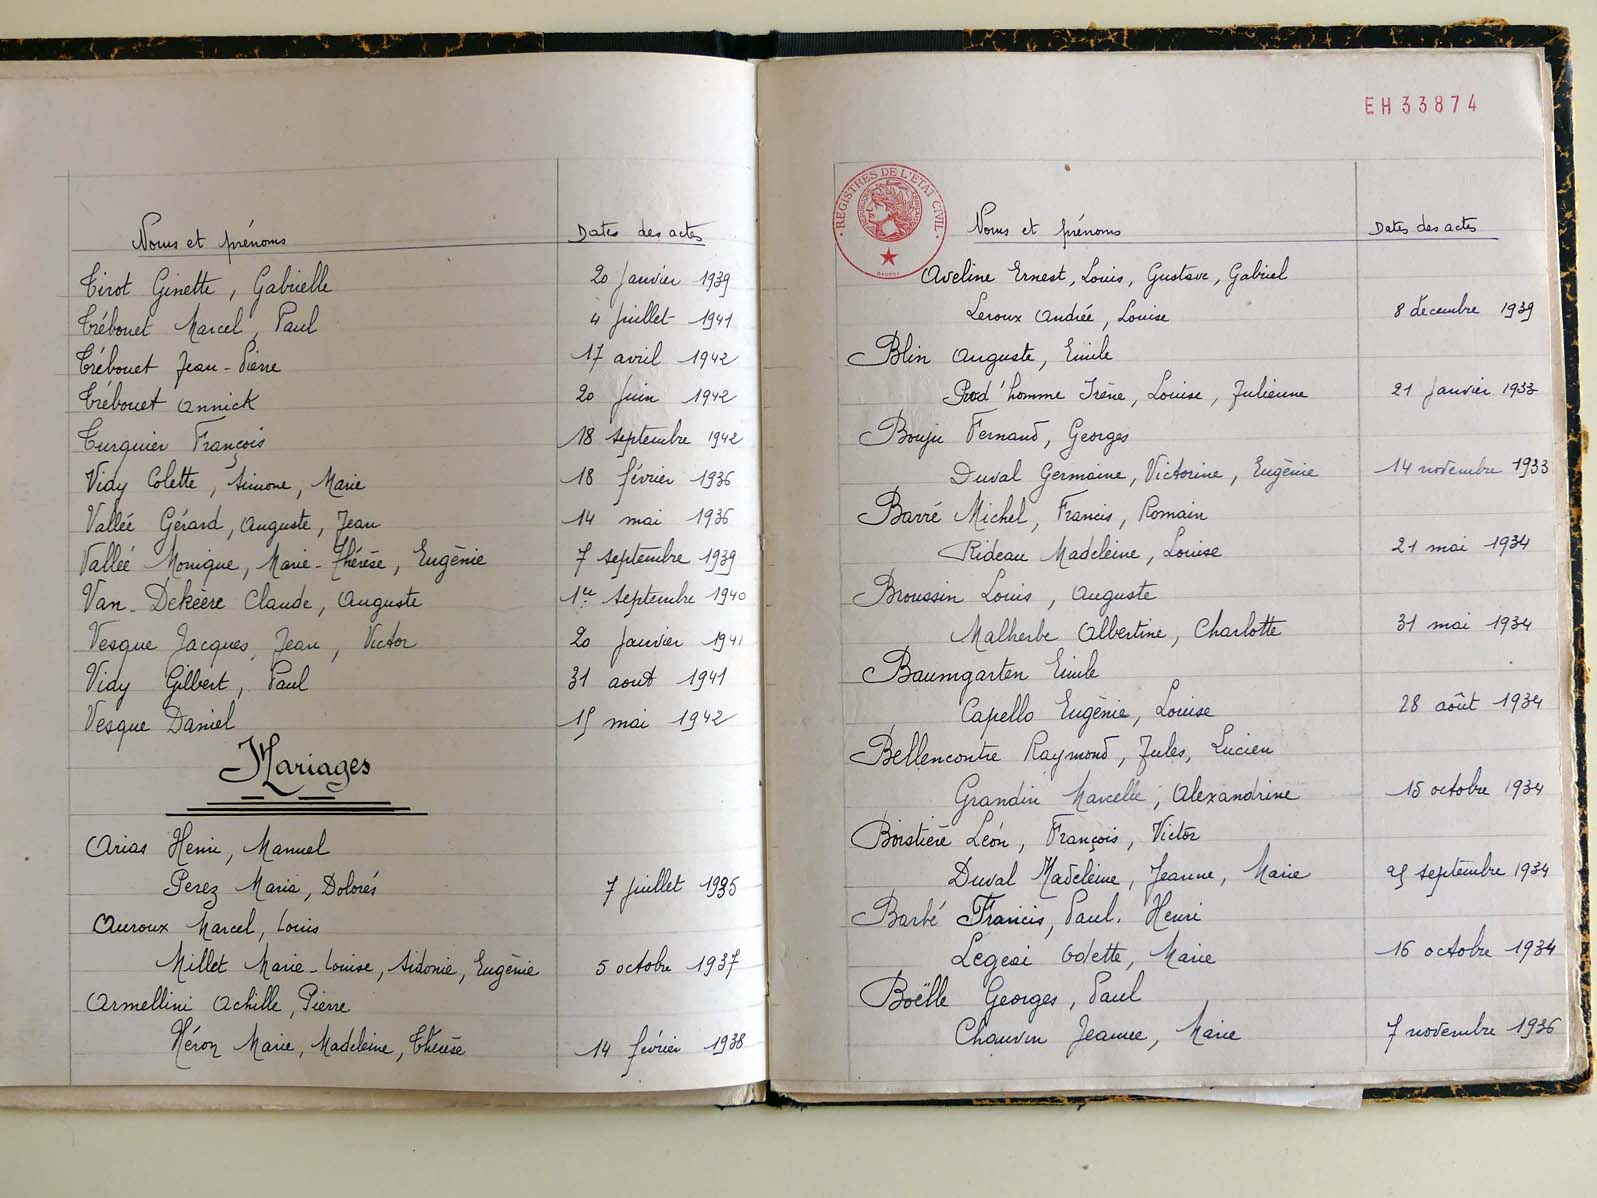 Noms et prénoms Dates des actes
Tirot Ginette, Gabrielle 20 Janvier 1939
Trébouet Marcel, Paul 4 Juillet 1941
Trébouet Jean-Pierre 17 avril 1942
Trébouet Annick 20 Juin 1942
Turquier François 18 septembre 1942
Vidy Colette, Simone, Marie 18 février 1936
Vallée Gérard, Auguste, Jean 14 mai 1936
Vallée Monique, Marie-Thérèse, Eugènie 7 septembre 1939
Van-Dekèere Claude, Auguste 1er septembre 1940
Vesque Jacques, Jean, Victor 20 Janvier 1941
Vidy Gilbert, Paul 31 aout 1941
Vesque Daniel 15 mai 1942
Mariages
Arias Henri, Manuel
Perez Maria, Dolorés 7 Juillet 1935
Auroux Marcel, Louis
Millet Marie-Louise, Sidonie, Eugènie 5 octobre 1937
Armellini Achille, Pierre
Héron Marie, Madeleine, Thérèse 14 février 1938
EH33874
REGISTRES DE L'ETAT CIVIL
Noms et prénoms Dates des actes
Aveline Ernest, Louis, Gustave, Gabriel
Leroux Andrée, Louise 8 décembre 1939
Blin Auguste, Emile
Prod'homme Irène, Louise, Julienne 21 Janvier 1933
Bouju Fernand, Georges
Duval Germaine, Victorine, Eugènie 14 novembre 1933
Barré Michel, Francis, Romain
Rideau Madeleine, Louise 21 mai 1934
Broussin Louis, Auguste
Malherbe Albertine, Charlotte 31 mai 1934
Baumgarten Emile
Capello Eugènie, Louise 28 août 1934
Bellencontre Raymond, Jules, Lucien
Grandin Marcelle, Alexandrine 15 octobre 1934
Boistière Léon, François, Victor
Duval Madeleine, Jeanne, Marie 25 septembre 1934
Barbé Francis, Paul, Henri
Odette, Marie 16 octobre 1934
Boëlle Georges, Paul
Chauvin Jeanne, Marie 7 novembre 1936